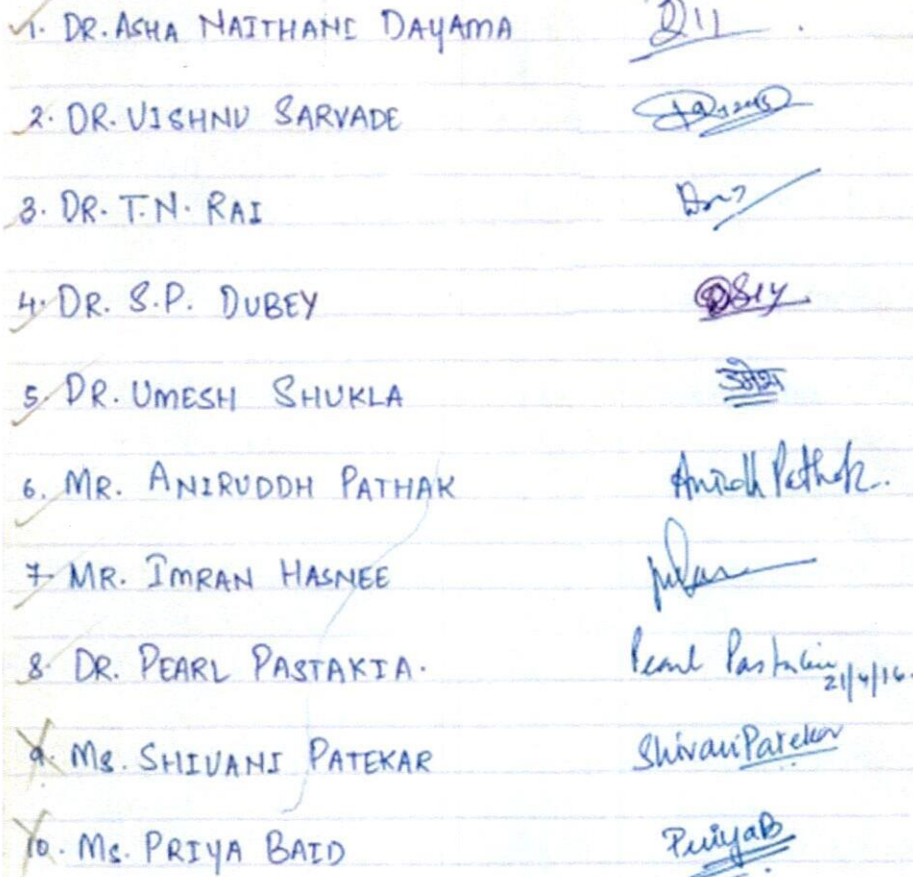 1. DR. ASHA NAITHANI DAYAMA
2. DR. VISHNU SARVADE
3. DR. T.N. RAI
4. DR. S.P. DUBEY
5. DR. UMESH SHUKLA उमेश
6. MR. ANIRUDDH PATHAK Anirdh Pathak.
7. MR. IMRAN HASNEE
8. DR. PEARL PASTAKIA. Pearl Pastakia
21/4/16.
9. Ms. SHIVANI PATEKAR Shivani Patekar
10. Ms. PRIYA BAID PriyaB